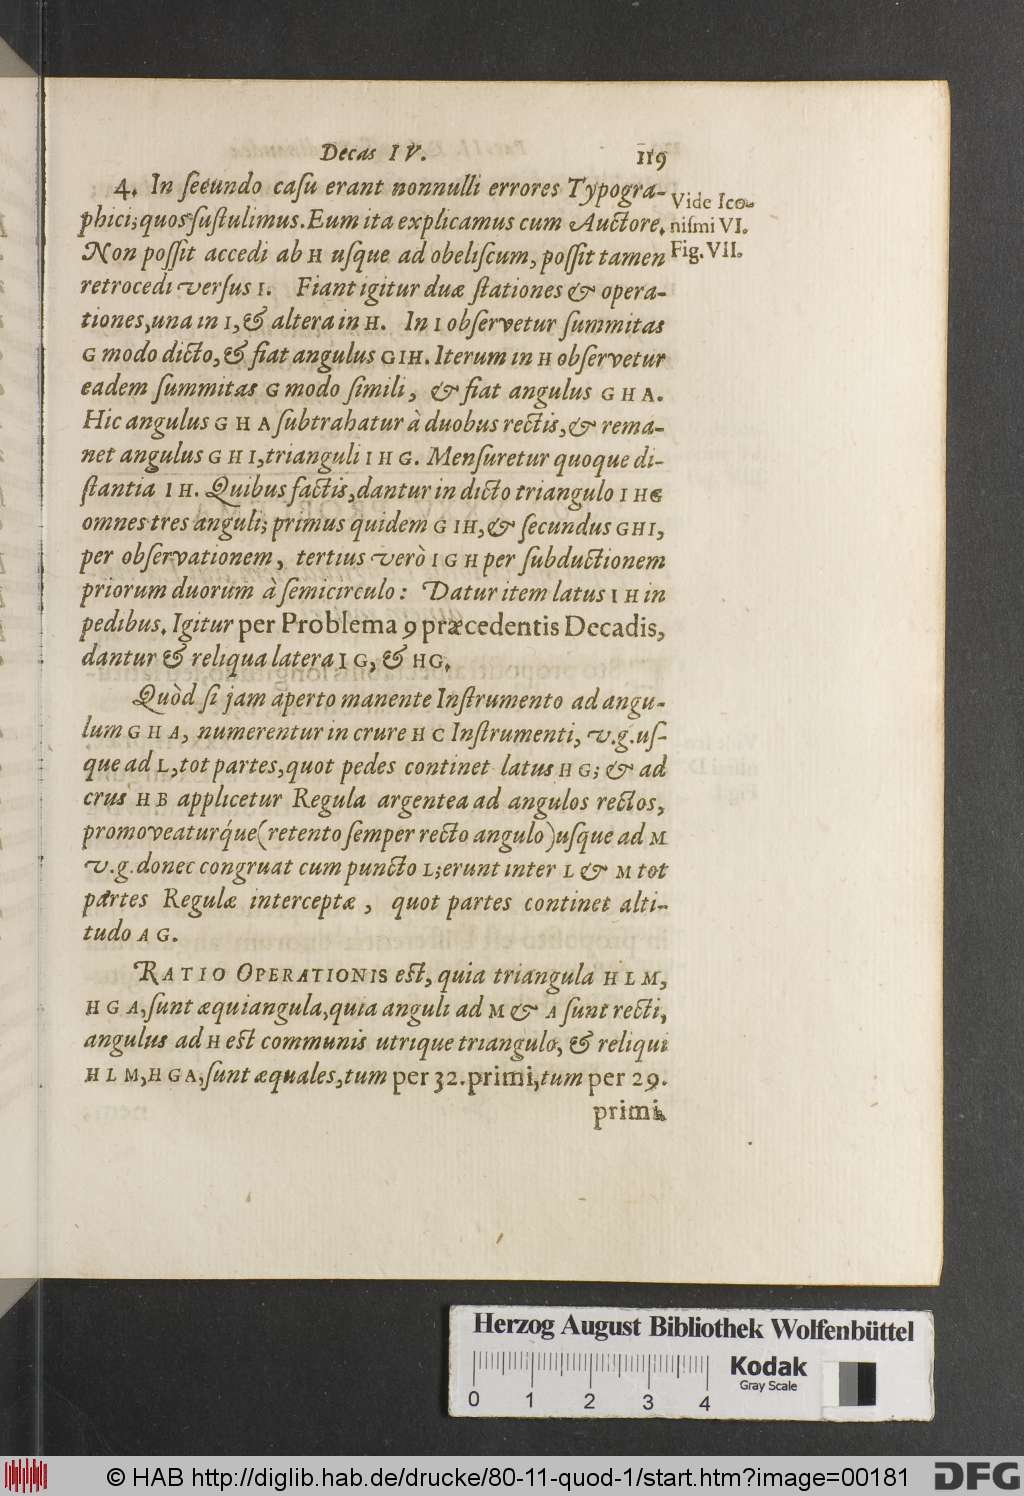 Decas IV. 119
4. In secundo casu erant nonnulli errores Typogra-
phici; quos sustulimus. Eum ita explicamus cum Auctore.
Vide Ico-
nismi VI.
Fig. VII.
Non possit accedi ab H usque ad obeliscum, possit tamen
retrocedi versus I. Fiant igitur duæ stationes & opera-
tiones, una in I, & altera in H. In I observetur summitas
G modo dicto, & fiat angulus GIH. Iterum in H observetur
eadem summitas G modo simili, & fiat angulus G H A.
Hic angulus G H A subtrahatur à duobus rectis, & rema-
net angulus G H I, trianguli I H G. Mensuretur quoque di-
stantia I H. Quibus factis, dantur in dicto triangulo I H G
omnes tres anguli; primus quidem G IH, & secundus GHI,
per observationem, tertius verò I G H per subductionem
priorum duorum à semicirculo: Datur item latus I H in
pedibus. Igitur per Problema 9 præcedentis Decadis,
dantur & reliqua latera I G, & HG.
Quòd si jam aperto manente Instrumento ad angu-
lum G H A, numerentur in crure H C Instrumenti, v.g. us-
que ad L, tot partes, quot pedes continet latus H G; & ad
crus H B applicetur Regula argentea ad angulos rectos,
promoveaturq́ue (retento semper recto angulo) usque ad M
v.g. donec congruat cum puncto L; erunt inter L & M tot
partes Regulæ interceptæ, quot partes continet alti-
tudo A G.
RATIO OPERATIONIS est, quia triangula H L M,
H G A, sunt æquiangula, quia anguli ad M & A sunt recti,
angulus ad H est communis utrique triangulo, & reliqui
H L M, H G A, sunt æquales, tum per 32. primi, tum per 29.
primi.
Herzog August Bibliothek Wolfenbüttel
0 1 2 3 4
Kodak
Gray Scale
© HAB http://diglib.hab.de/drucke/80-11-quod-1/start.htm?image=00181
DFG